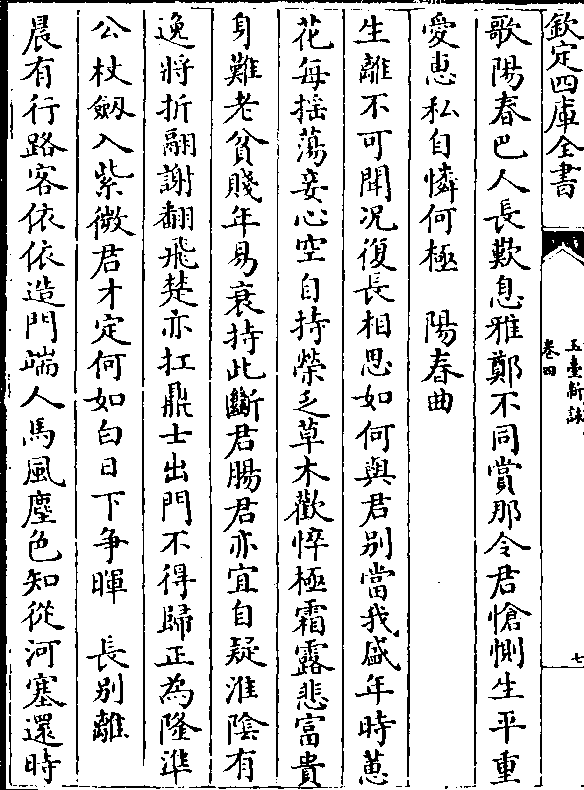 欽定四庫全書
玉臺新詠
卷四
七
歌陽春巴人長歎息雅鄭不同賞那令君愴惻生平重
愛惠私自憐何極　陽春曲
生離不可聞況復長相思如何與君别當我盛年時蕙
花每揺蕩妾心空自持榮乏草木歡悴極霜露悲富貴
身難老貧賤年易衰持此斷君腸君亦宜自疑淮陰有
逸將折翮謝翻飛楚亦扛鼎士出門不得歸正為隆準
公杖劔入紫微君才定何如白日下争暉　長别離
晨有行路客依依造門端人馬風塵色知從河塞還時